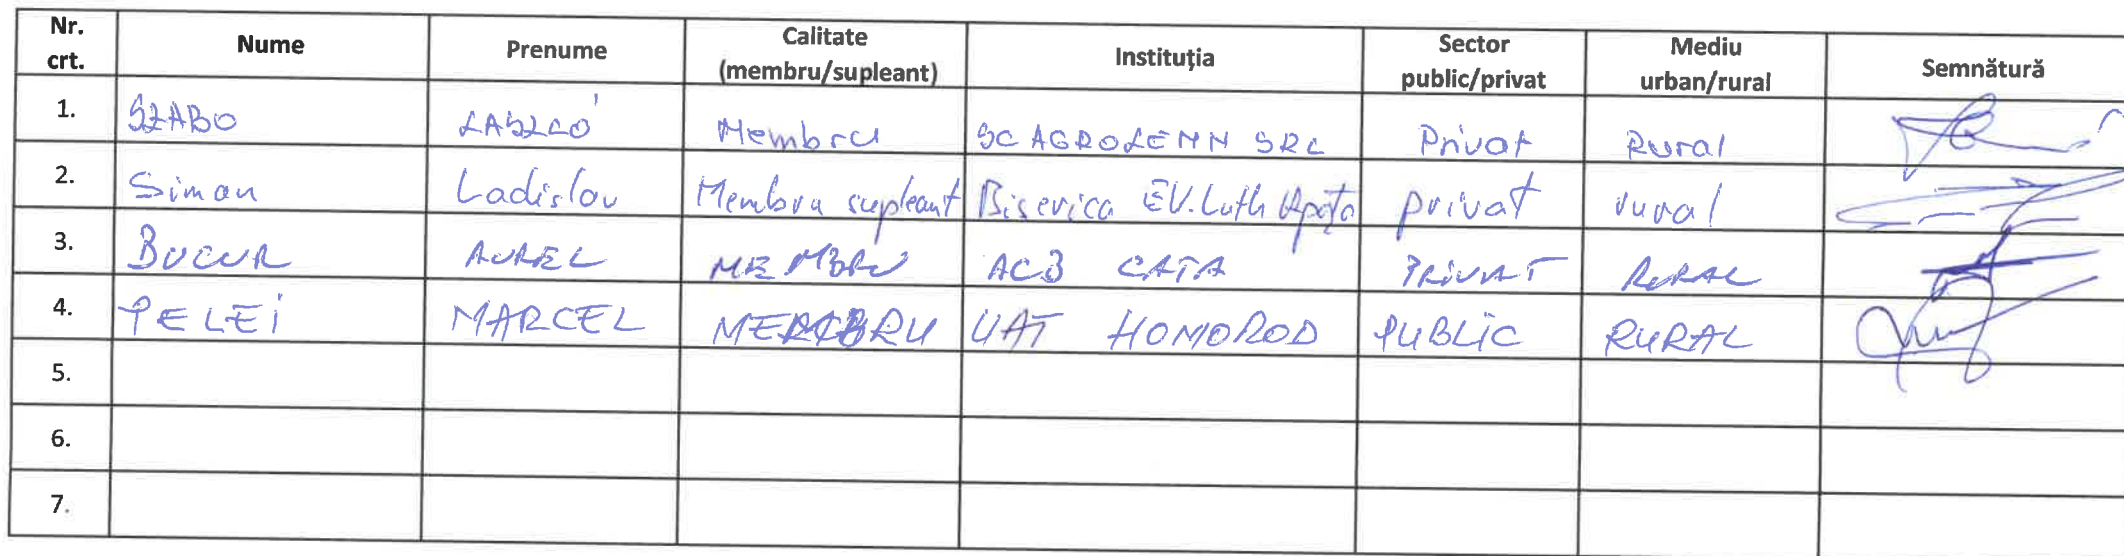 Nr. crt. Nume Prenume Calitate (membru/supleant) Instituția Sector public/privat Mediu urban/rural Semnătură
1. SZABO LASZLÓ Membru SC AGROLEMN SRL Privat Rural
2. Siman Ladislau Membru supleant Biserica EV.Luth Apața privat rural
3. BUCUR AUREL MEMBRU ACB CATA PRIVAT RURAL
4. PELEI MARCEL MEMBRU UAT HOMOROD PUBLIC RURAL
5.
6.
7.